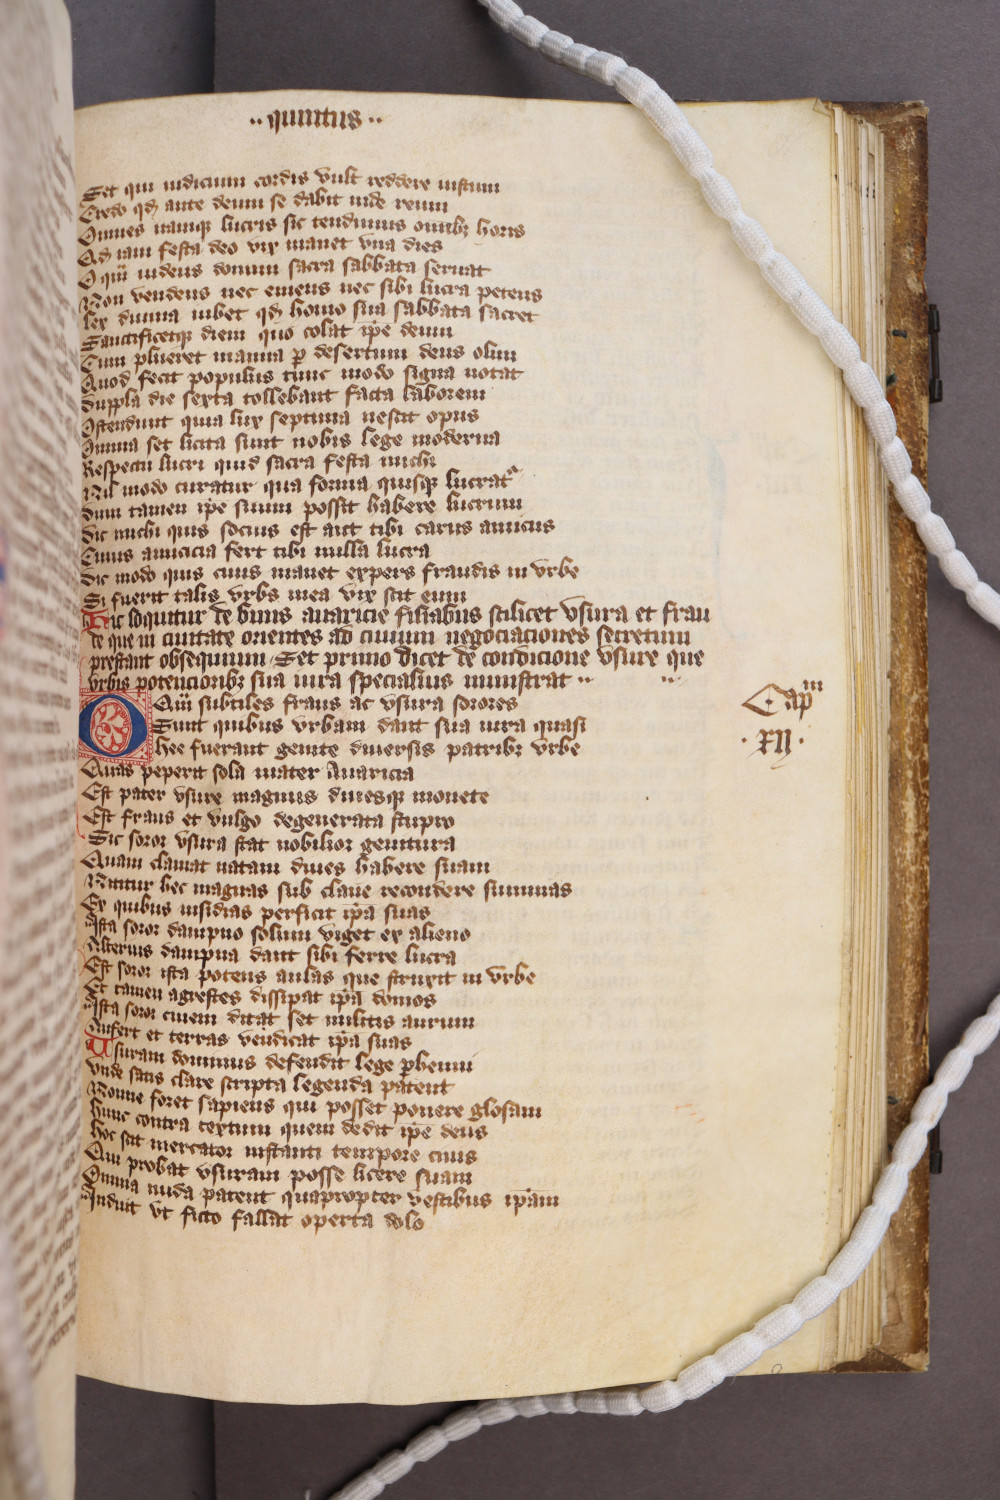 ·· quintus ··
Set qui iudicium cordis vult reddere iustum
Credo qd ante deum se dabit inde reum
Omnes namque lucris sic tendimus omnibz horis
Qd iam festa deo vix manet vna dies
O quī iudeus domini sacra sabbata seruat
Non vendens nec emens nec sibi lucra petens
Lex diuina iubet qd homo sua sabbata sacret
Sanctificetqz diem quo colat ipe deum
Cum plueret manna p desertum deus olim
Quod fecit populus tunc modo signa notat
Duppla die sexta tollebant facta laborem
Ostendunt quia lux septima nescit opus
Omnia set licita sunt nobis lege moderna
Respectu lucri quid sacra festa michi
Nil modo curatur qua forma quisqz lucrat
Dum tamen ipe suum possit habere lucrum
Dic michi quis socius est aut tibi carus amicus
Cuius amicicia fert tibi nulla lucra
Dic modo quis ciuis manet expers fraudis in vrbe
Si fuerit talis vrbs mea vix scit eum
Hic loquitur de binis auaricie filiabus scilicet vsura et frau
de que in ciuitate orientes ad ciuium negociaciones secretum
prestant obsequium Set primo dicet de condicione vsure que
vrbis potencioribz sua iura specialius ministrat ·· ··
Quī subtiles fraus ac vsura sorores
Sunt quibus vrbani dant sua iura quasi
Hee fuerant genite diuersis patribz vrbe
Capm
·XII·
Quas peperit sola mater Auaricia
Est pater vsure magnus diuesqz monete
Est fraus et vulgo degenerata stupro
Sic soror vsura stat nobilior genitura
Quam clamat natam diues habere suam
Nititur hec magnas sub claue recondere summas
Ex quibus insidias perficit ipa suas
Ista soror dampno solum viget ex alieno
Alterius dampna dant sibi ferre lucra
Est soror ista potens aulas que struxit in vrbe
Et tamen agrestes dissipat ipa domos
Ista soror ciuem ditat set militis aurum
Aufert et terras vendicat ipa suas
Usuram dominus defendit lege phenni
Vnde satis clare scripta legenda patent
Nonne foret sapiens qui posset ponere glosam
Hunc contra textum quem dedit ipe deus
Hoc scit mercator instanti tempore ciuis
Qui probat vsuram posse licere suam
Omnia nuda patent quapropter vestibus ipam
Induit vt ficto fallat operta dolo